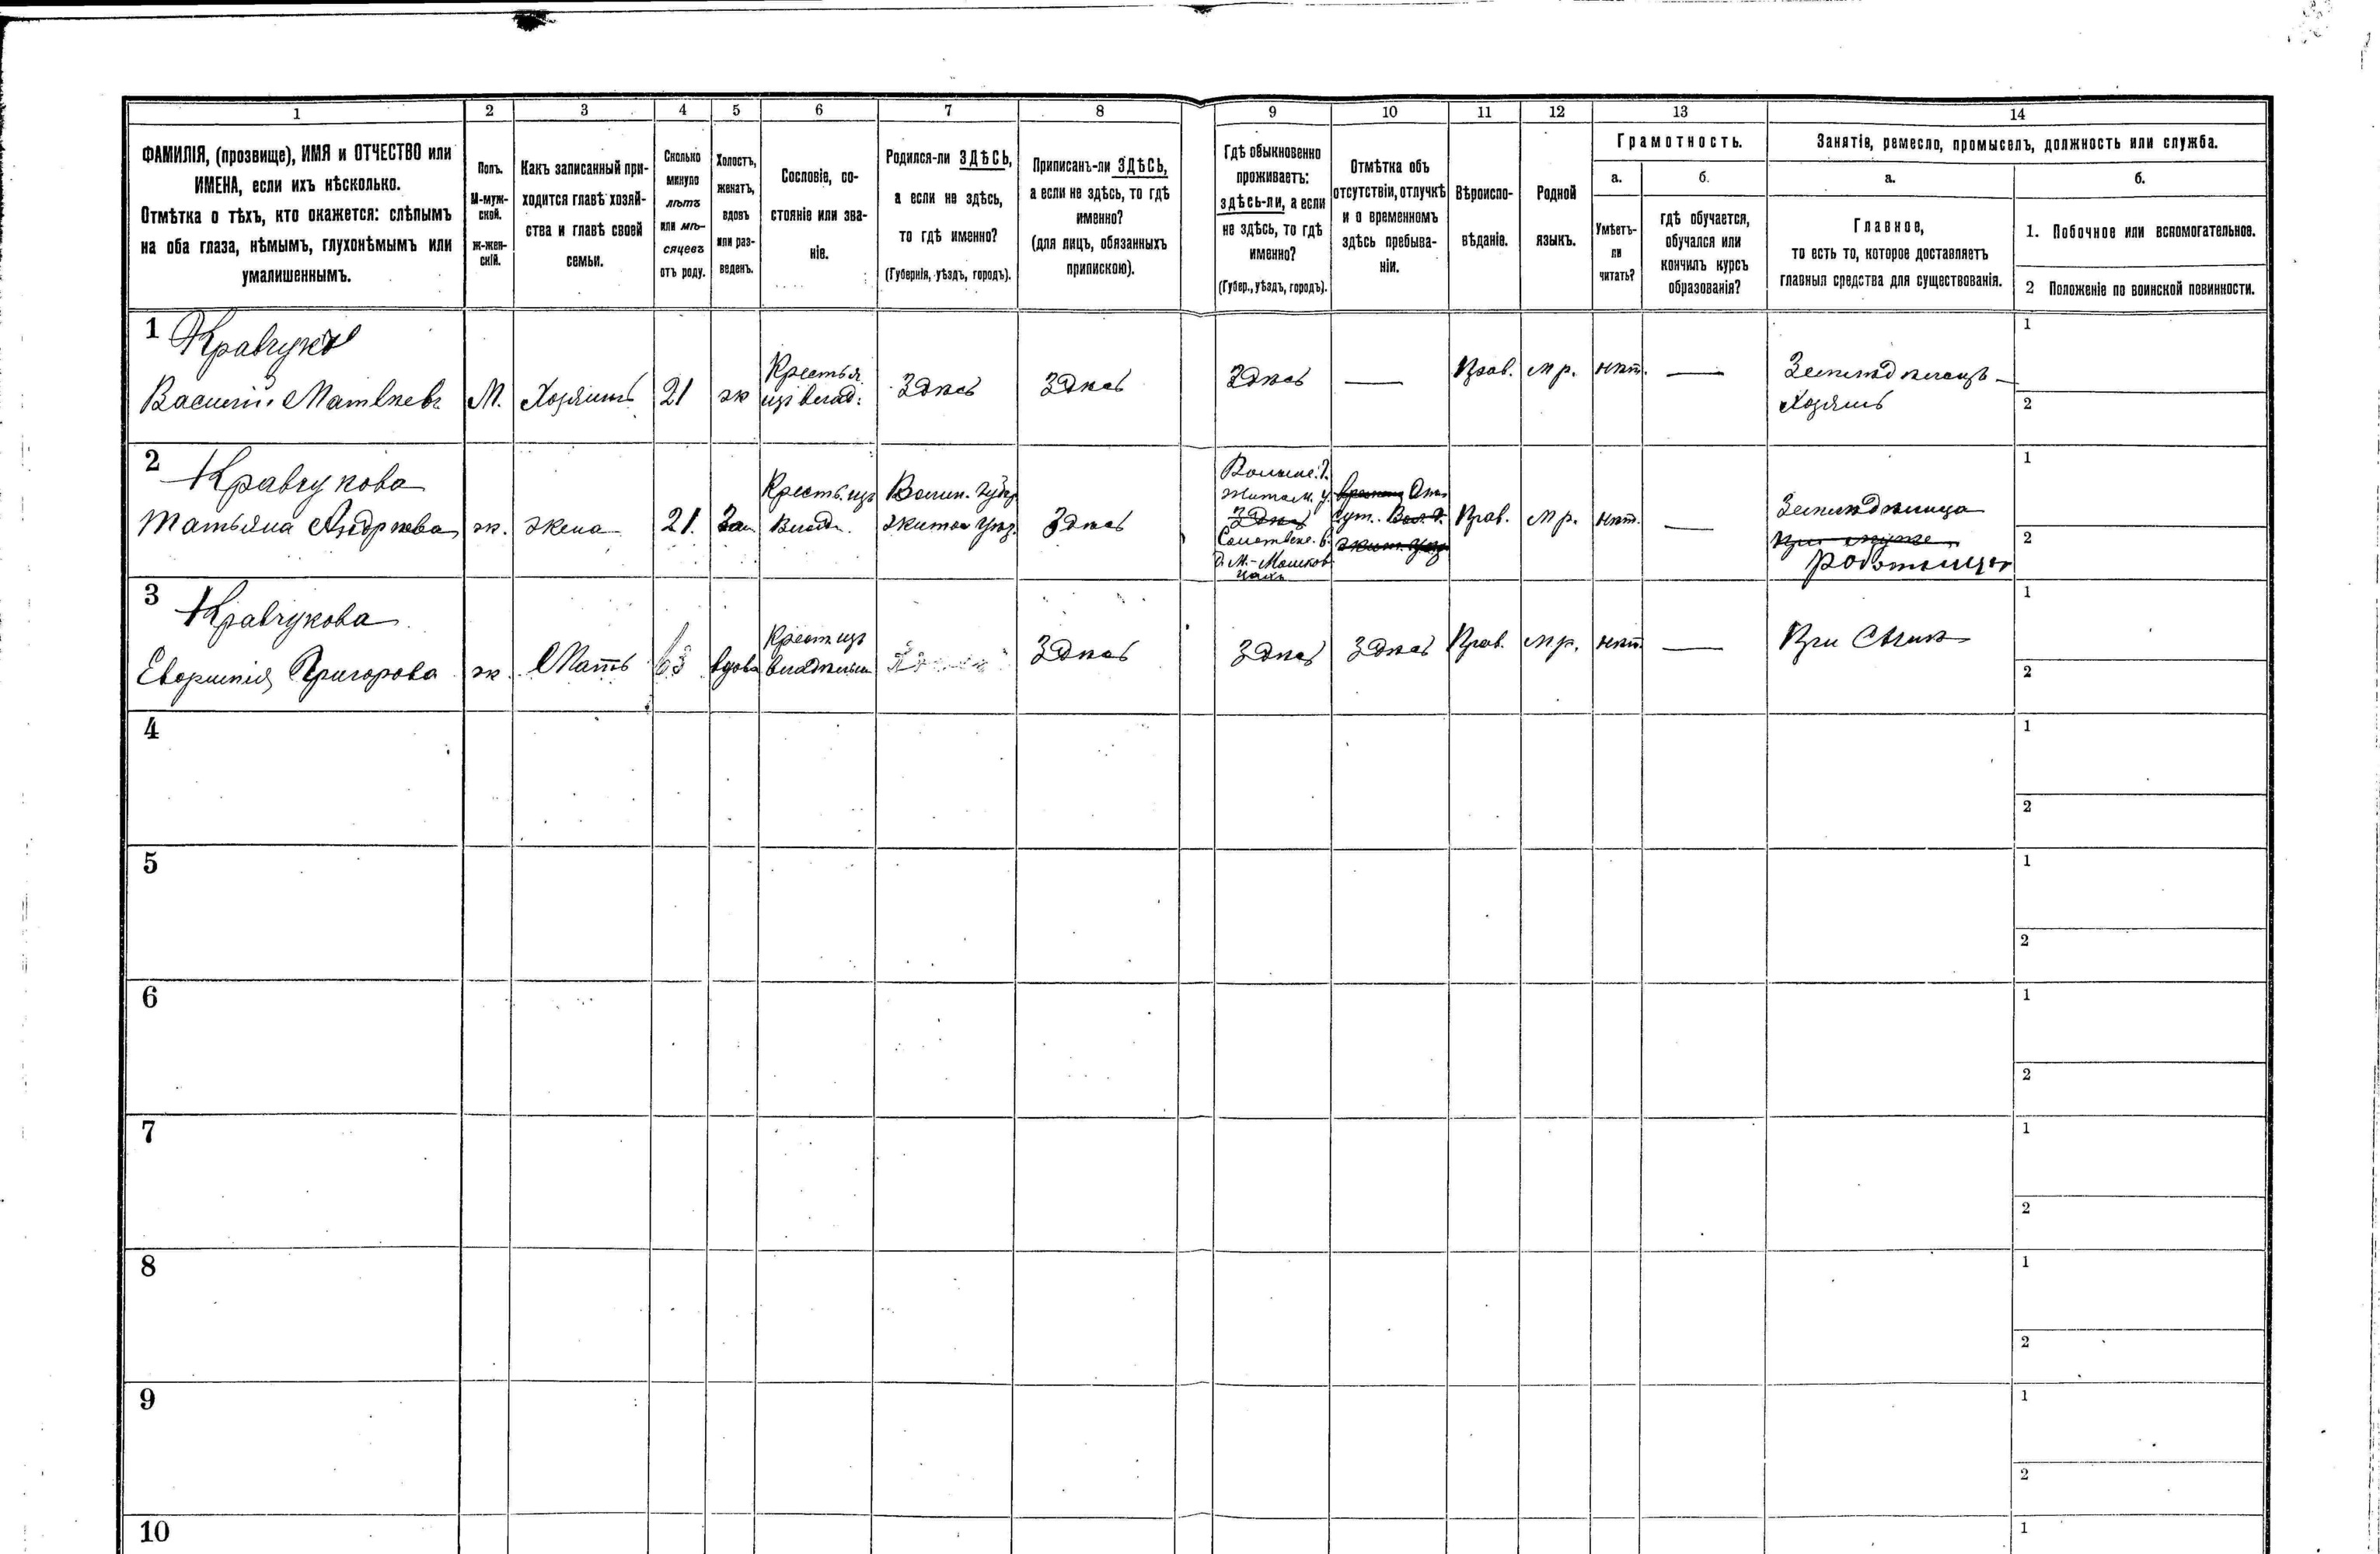 1 2 3 4 5 6 7 8 9 10 11 12 13 14
ФАМИЛІЯ, (прозвище), ИМЯ и ОТЧЕСТВО или
ИМЕНА, если ихъ нѣсколько.
Отмѣтка о тѣхъ, кто окажется: слѣпымъ
на оба глаза, нѣмымъ, глухонѣмымъ или
умалишеннымъ.
Полъ.
М-муж-
ской.
ж-жен-
скій.
Какъ записанный при-
ходится главѣ хозяй-
ства и главѣ своей
семьи.
Сколько
минуло
лѣтъ
или мѣ-
сяцевъ
отъ роду.
Холостъ,
женатъ,
вдовъ
или раз-
веденъ.
Сословіе, со-
стояніе или зва-
ніе.
Родился-ли ЗДѢСЬ,
а если не здѣсь,
то гдѣ именно?
(Губернія, уѣздъ, городъ).
Приписанъ-ли ЗДѢСЬ,
а если не здѣсь, то гдѣ
именно?
(для лицъ, обязанныхъ
припискою).
Гдѣ обыкновенно
проживаетъ:
здѣсь-ли, а если
не здѣсь, то гдѣ
именно?
(Губер., уѣздъ, городъ).
Отмѣтка объ
отсутствіи, отлучкѣ
и о временномъ
здѣсь пребыва-
ніи.
Вѣроиспо-
вѣданіе.
Родной
языкъ.
Грамотность.
а.
Умѣетъ-
ли
читать?
б.
гдѣ обучается,
обучался или
кончилъ курсъ
образованія?
Занятіе, ремесло, промыселъ, должность или служба.
а.
Главное,
то есть то, которое доставляетъ
главныя средства для существованія.
б.
1. Побочное или вспомогательное.
2 Положеніе по воинской повинности.
1
Кравчукъ
Василій Матвѣевъ
М.
Хозяинъ
21
ж
Крестья.
изъ влад.
Здѣсь
Здѣсь
Здѣсь
—
Прав.
мр.
нѣт.
—
Земледѣлецъ –
Хозяинъ
1
2
2
Кравчукова
Татьяна Андреева
ж.
жена
21.
Зам
Кресть. изъ
Владѣ.
Волин. губер
Житом уѣз.
Здѣсь
Волынс. г.
Житом. у.
Здѣсь
в.
д. М.-Мошков
цахъ
Отъ
сут. Вол. г.
Жит. уѣз.
Прав.
мр.
нѣт.
—
Земледѣлица
при мужѣ
работница
1
2
3
Кравчукова
Григорова
ж.
Мать
63
вдова
Крест изъ
владѣльч
Здѣсь
Здѣсь
Здѣсь
Прав.
мр.
нѣт.
—
При Сынѣ
1
2
4
1
2
5
1
2
6
1
2
7
1
2
8
1
2
9
1
2
10
1